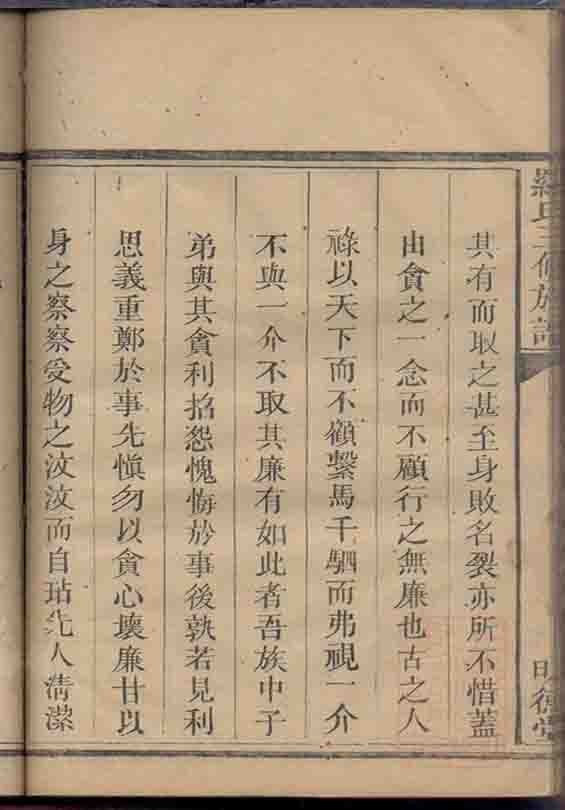 羅氏三修族譜
明德堂
其有而取之甚至身敗名裂亦所不惜蓋
由貪之一念而不顧行之無廉也古之人
祿以天下而不顧繫馬千駟而弗視一介
不與一介不取其廉有如此者吾族中子
弟與其貪利招怨愧悔於事後孰若見利
思義重鄭於事先愼勿以貪心壞廉甘以
身之察察受物之汶汶而自玷先人淸潔